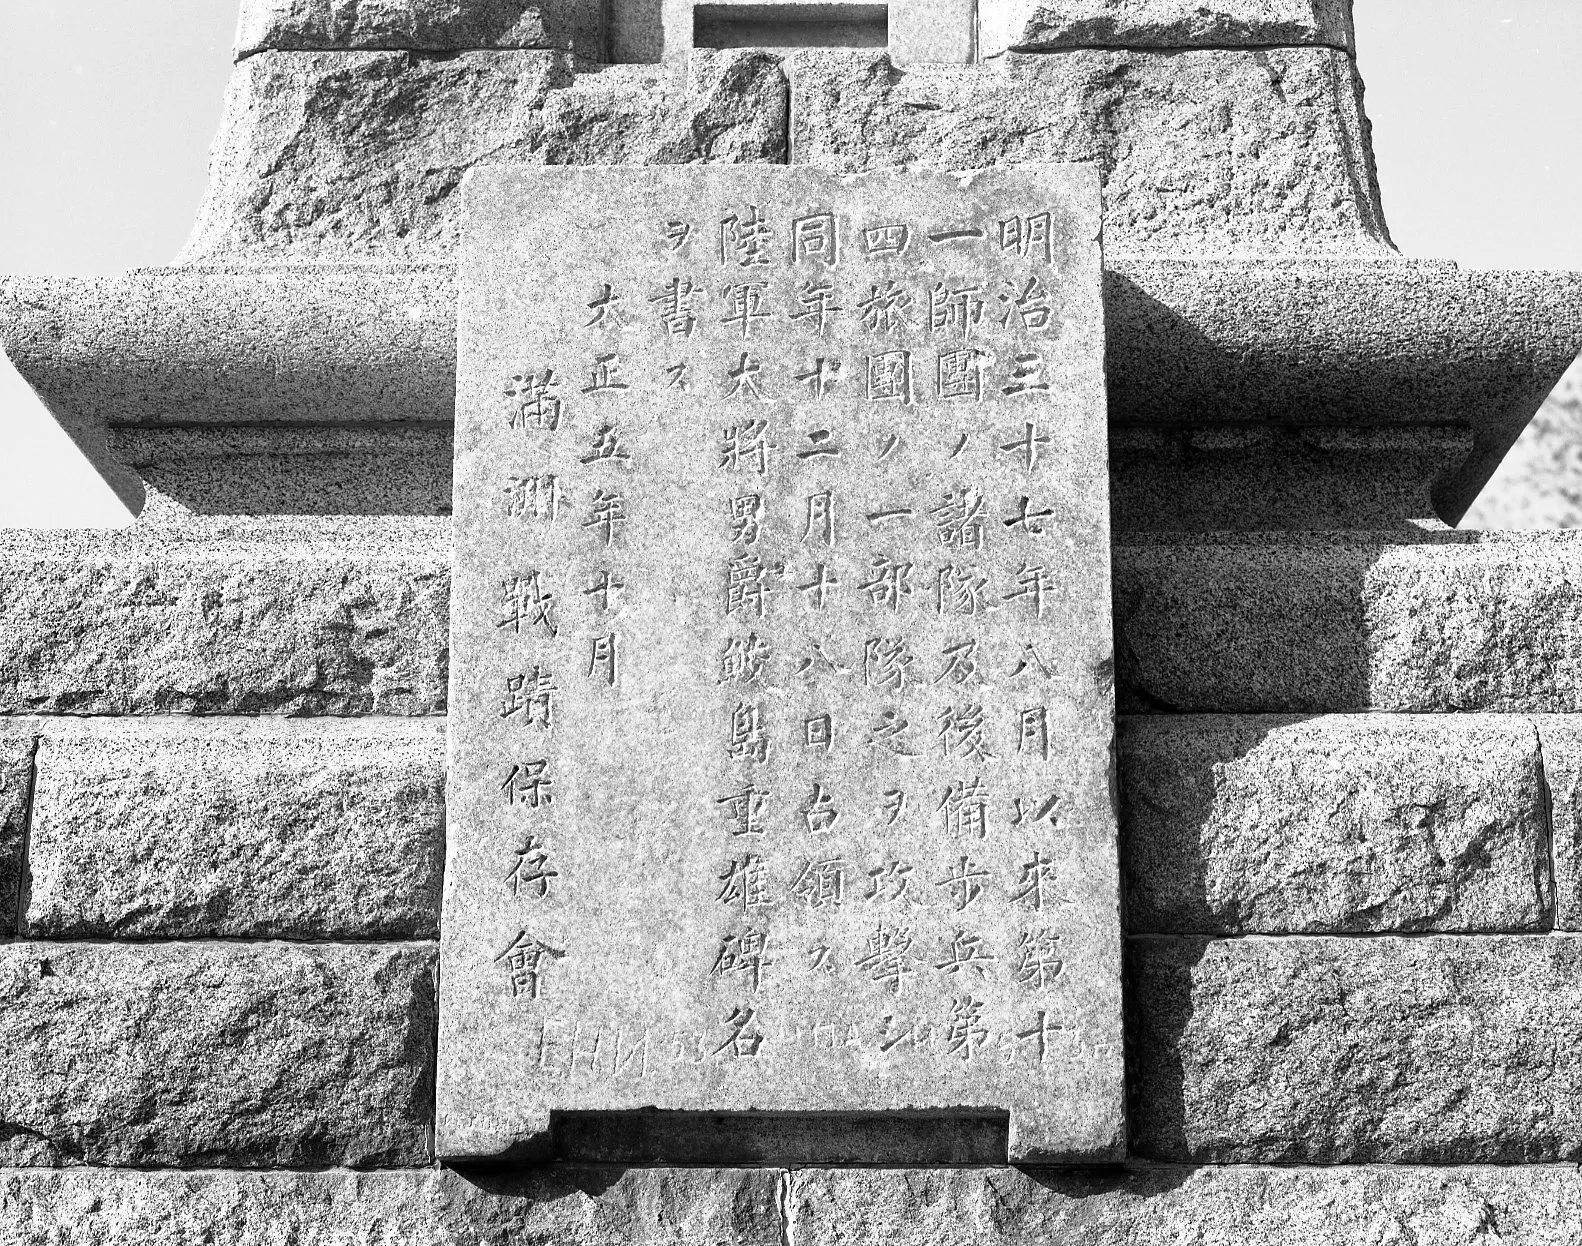 明治三十七年八月以來第十
一師團ノ諸隊及後備步兵第
四旅團ノ一部隊之ヲ攻擊シ
同年十二月十八日占領ス
陸軍大將男爵鮫島重雄碑名
ヲ書ス
大正五年十月
滿洲戰蹟保存會